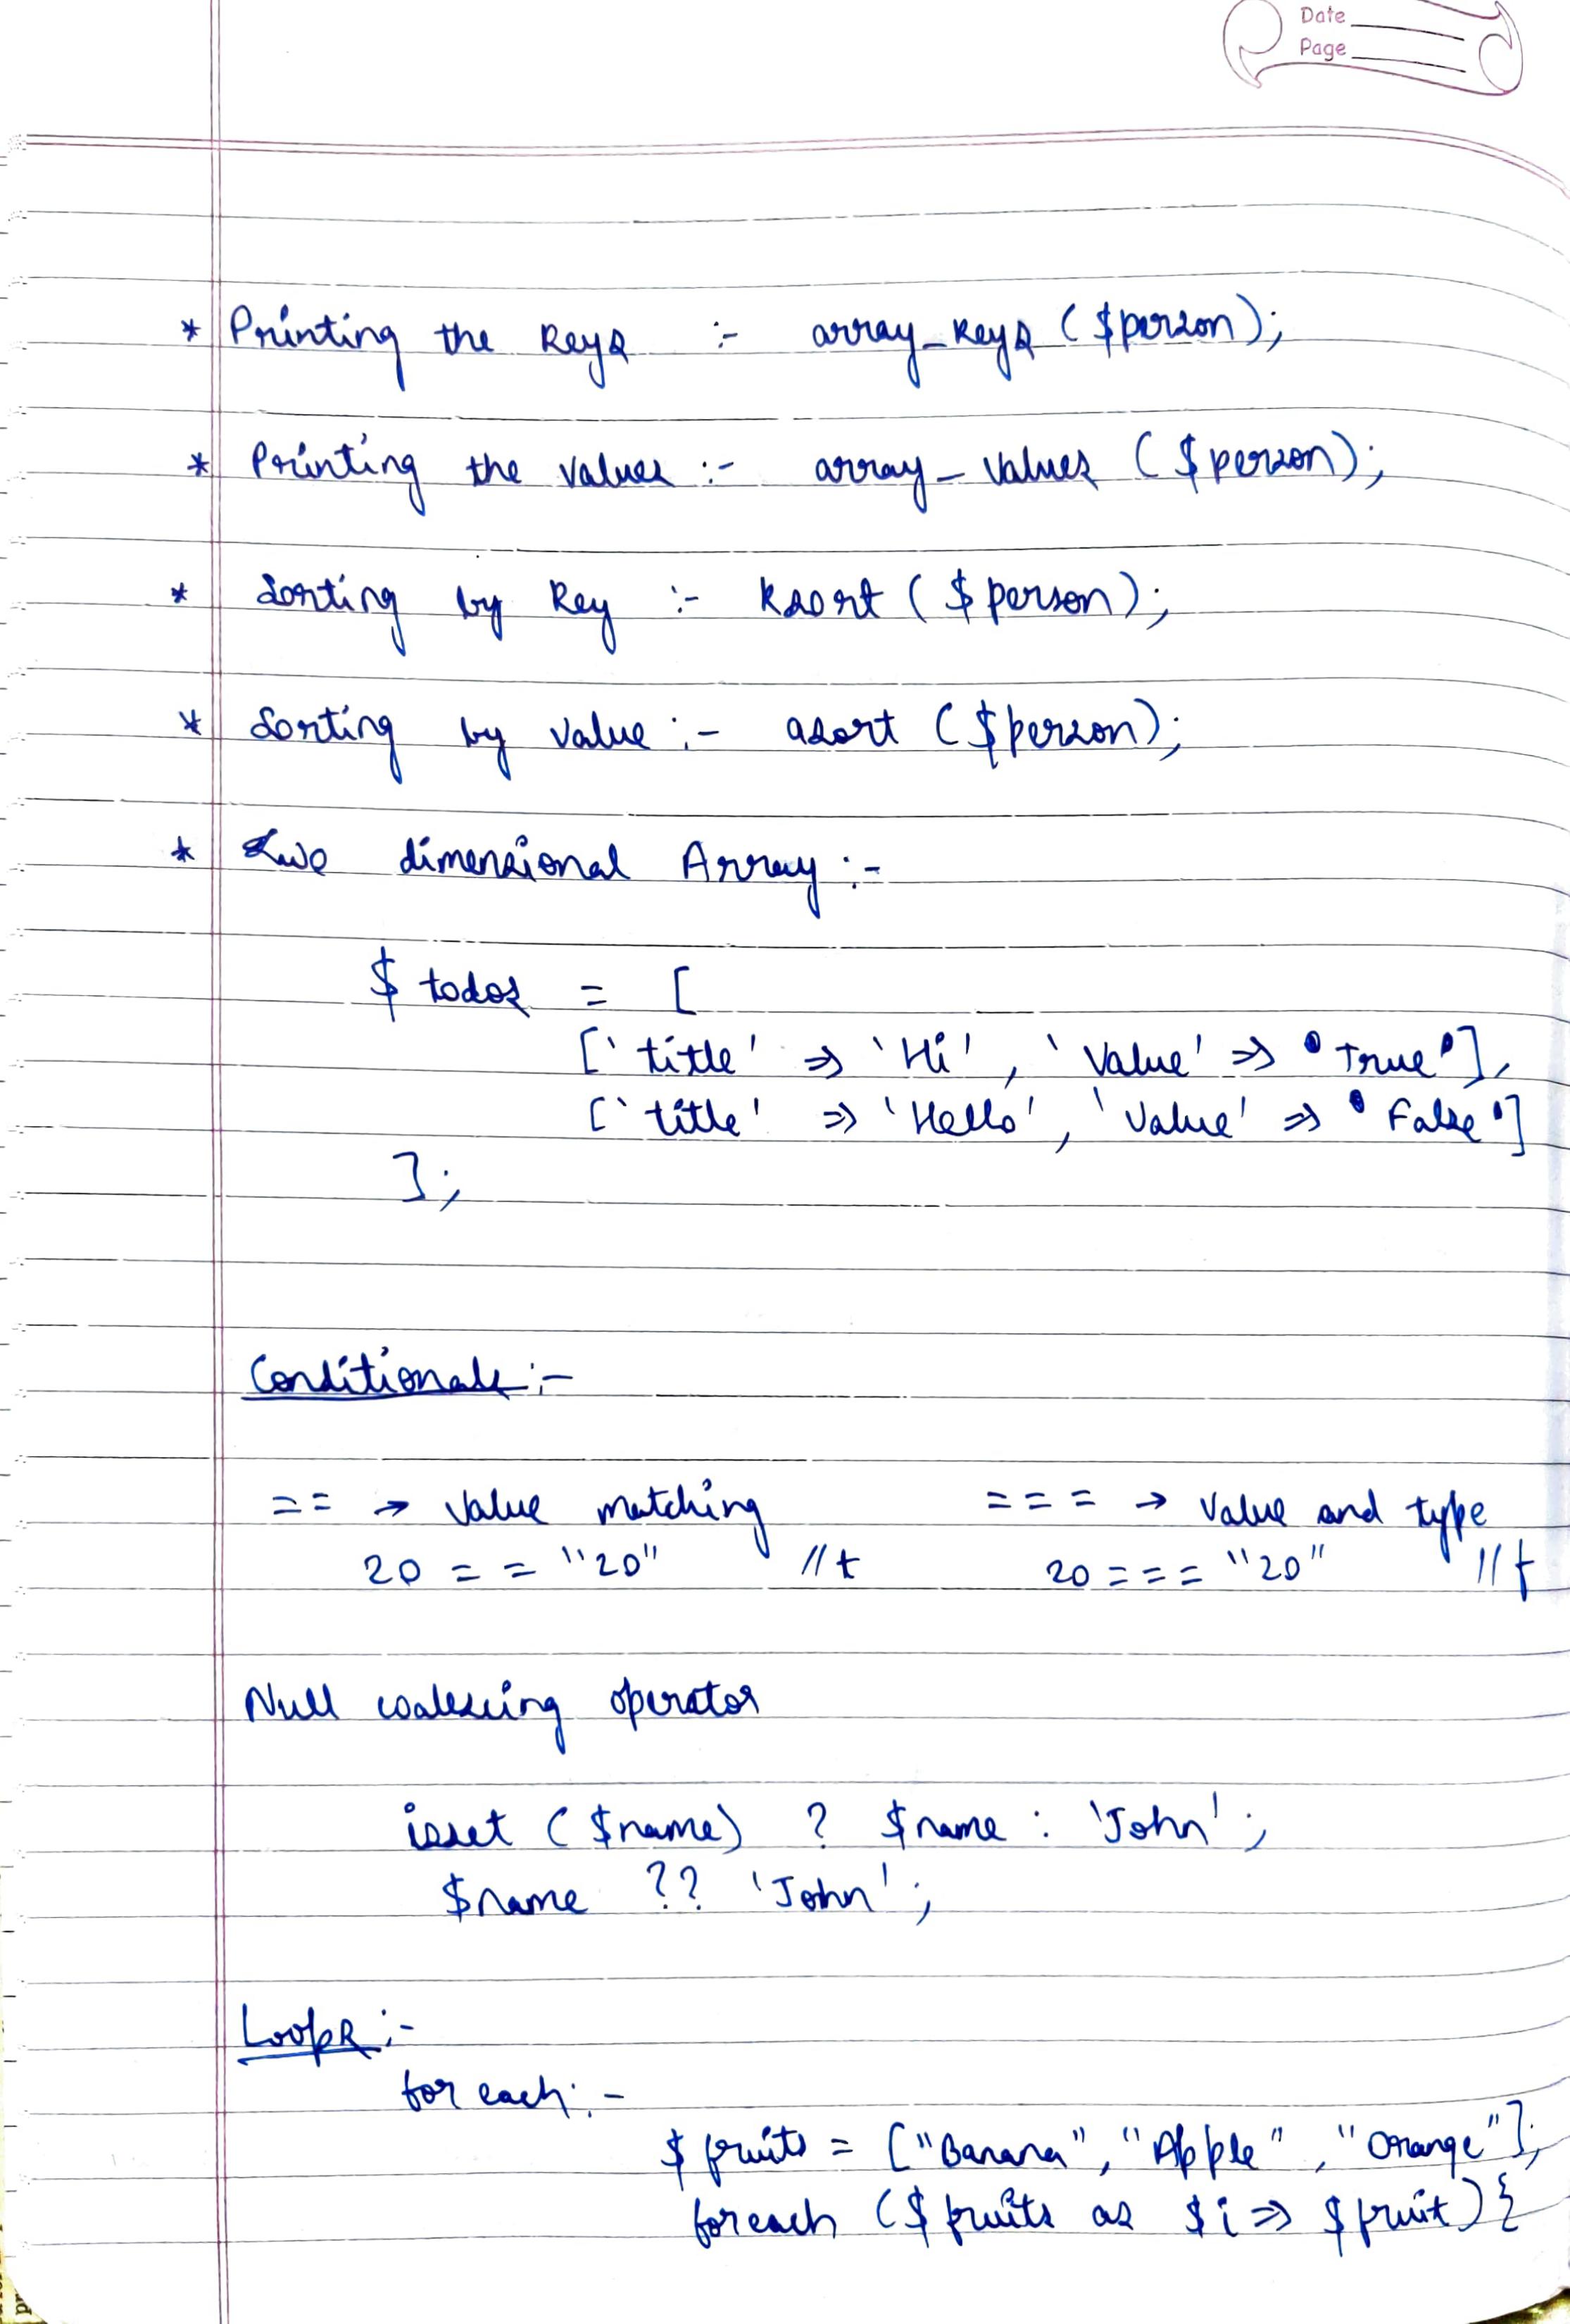 Date
Page
* Printing the keys :- array_keys ($person);
* Printing the values :- array_values ($person);
* Sorting by key :- ksort ($person);
* Sorting by value :- asort ($person);
* Two dimensional Array :-
$ todos = [
['title' => 'Hi', 'Value' => 'True'],
['title' => 'Hello', 'Value' => 'False']
];
Conditionals :-
== → Value matching === → Value and type
20 == "20" //t 20 === "20" //f
Null coalescing operator
isset ($name) ? $name : 'John';
$name ?? 'John';
Loops :-
for each :-
$fruits = ["Banana", "Apple", "Orange"];
foreach ($fruits as $i => $fruit) {